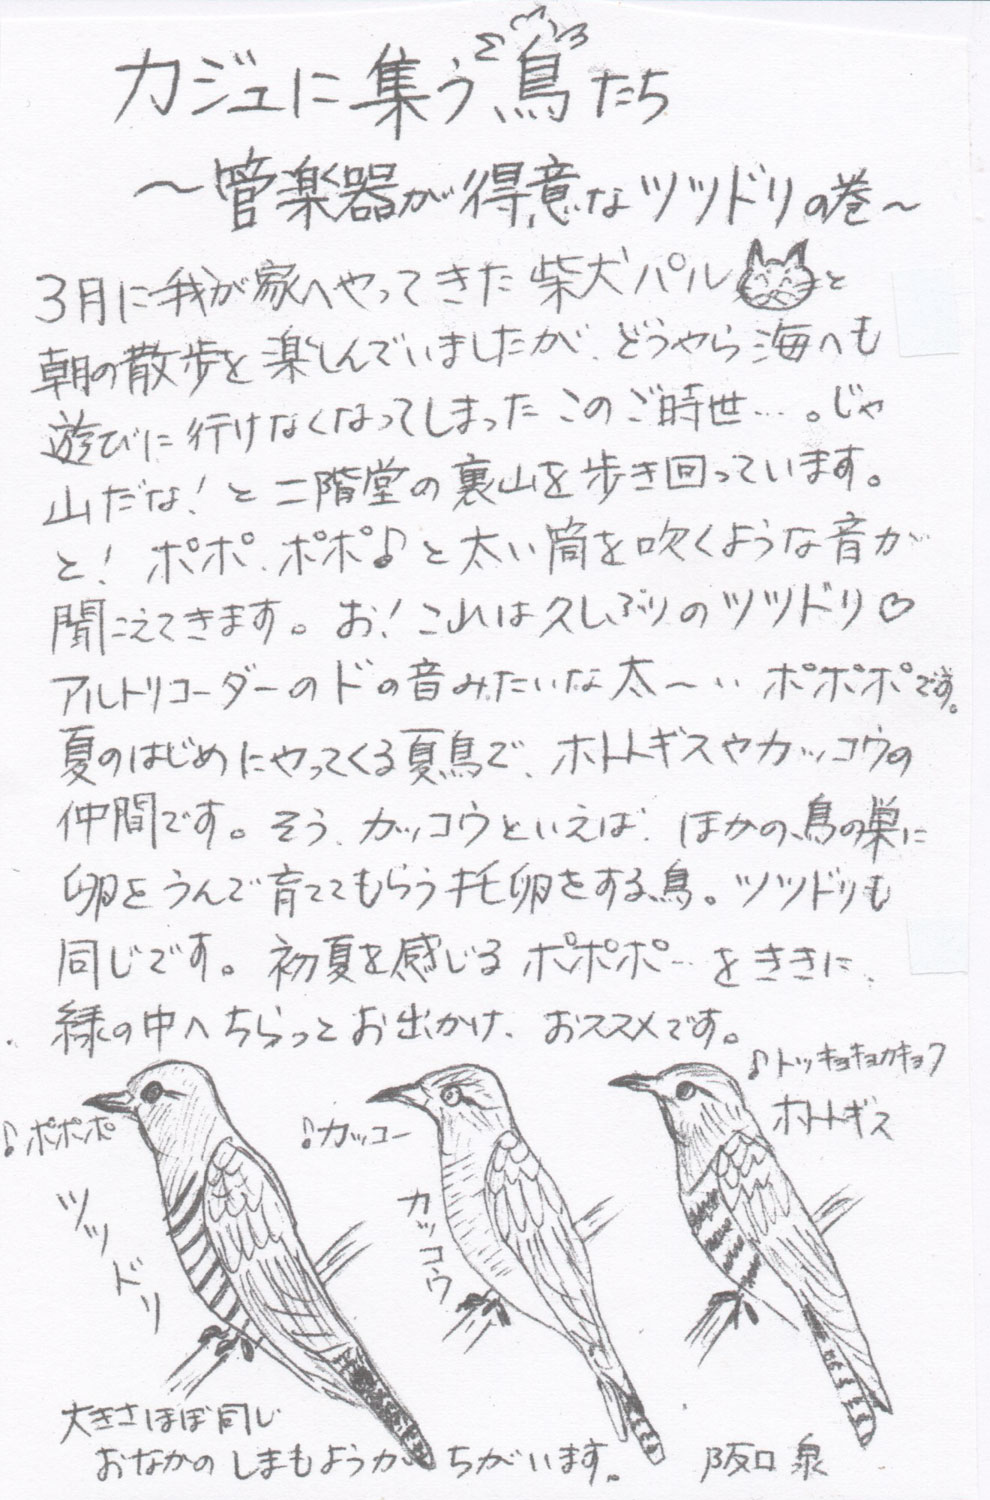 カジュに集う鳥たち
～管楽器が得意なツツドリの巻～
3月に我が家へやってきた柴犬パルと
朝の散歩を楽しんでいましたが、どうやら海へも
遊びに行けなくなってしまったこのご時世…。じゃ
山だな！と二階堂の裏山を歩き回っています。
と！ポポ、ポポ♪と太い筒を吹くような音が
聞こえてきます。お！これは久しぶりのツツドリ♡
アルトリコーダーのドの音みたいな太～いポポポです。
夏のはじめにやってくる夏鳥で、ホトトギスやカッコウの
仲間です。そう、カッコウといえば、ほかの鳥の巣に
卵をうんで育ててもらう托卵をする鳥。ツツドリも
同じです。初夏を感じるポポポ…をききに、
緑の中へちらっとお出かけ、おススメです。
♪ポポポ
ツツドリ
♪カッコー
カッコウ
♪トッキョキョカキョク
ホトトギス
大きさほぼ同じ
おなかのしまもようがちがいます。
阪口 泉